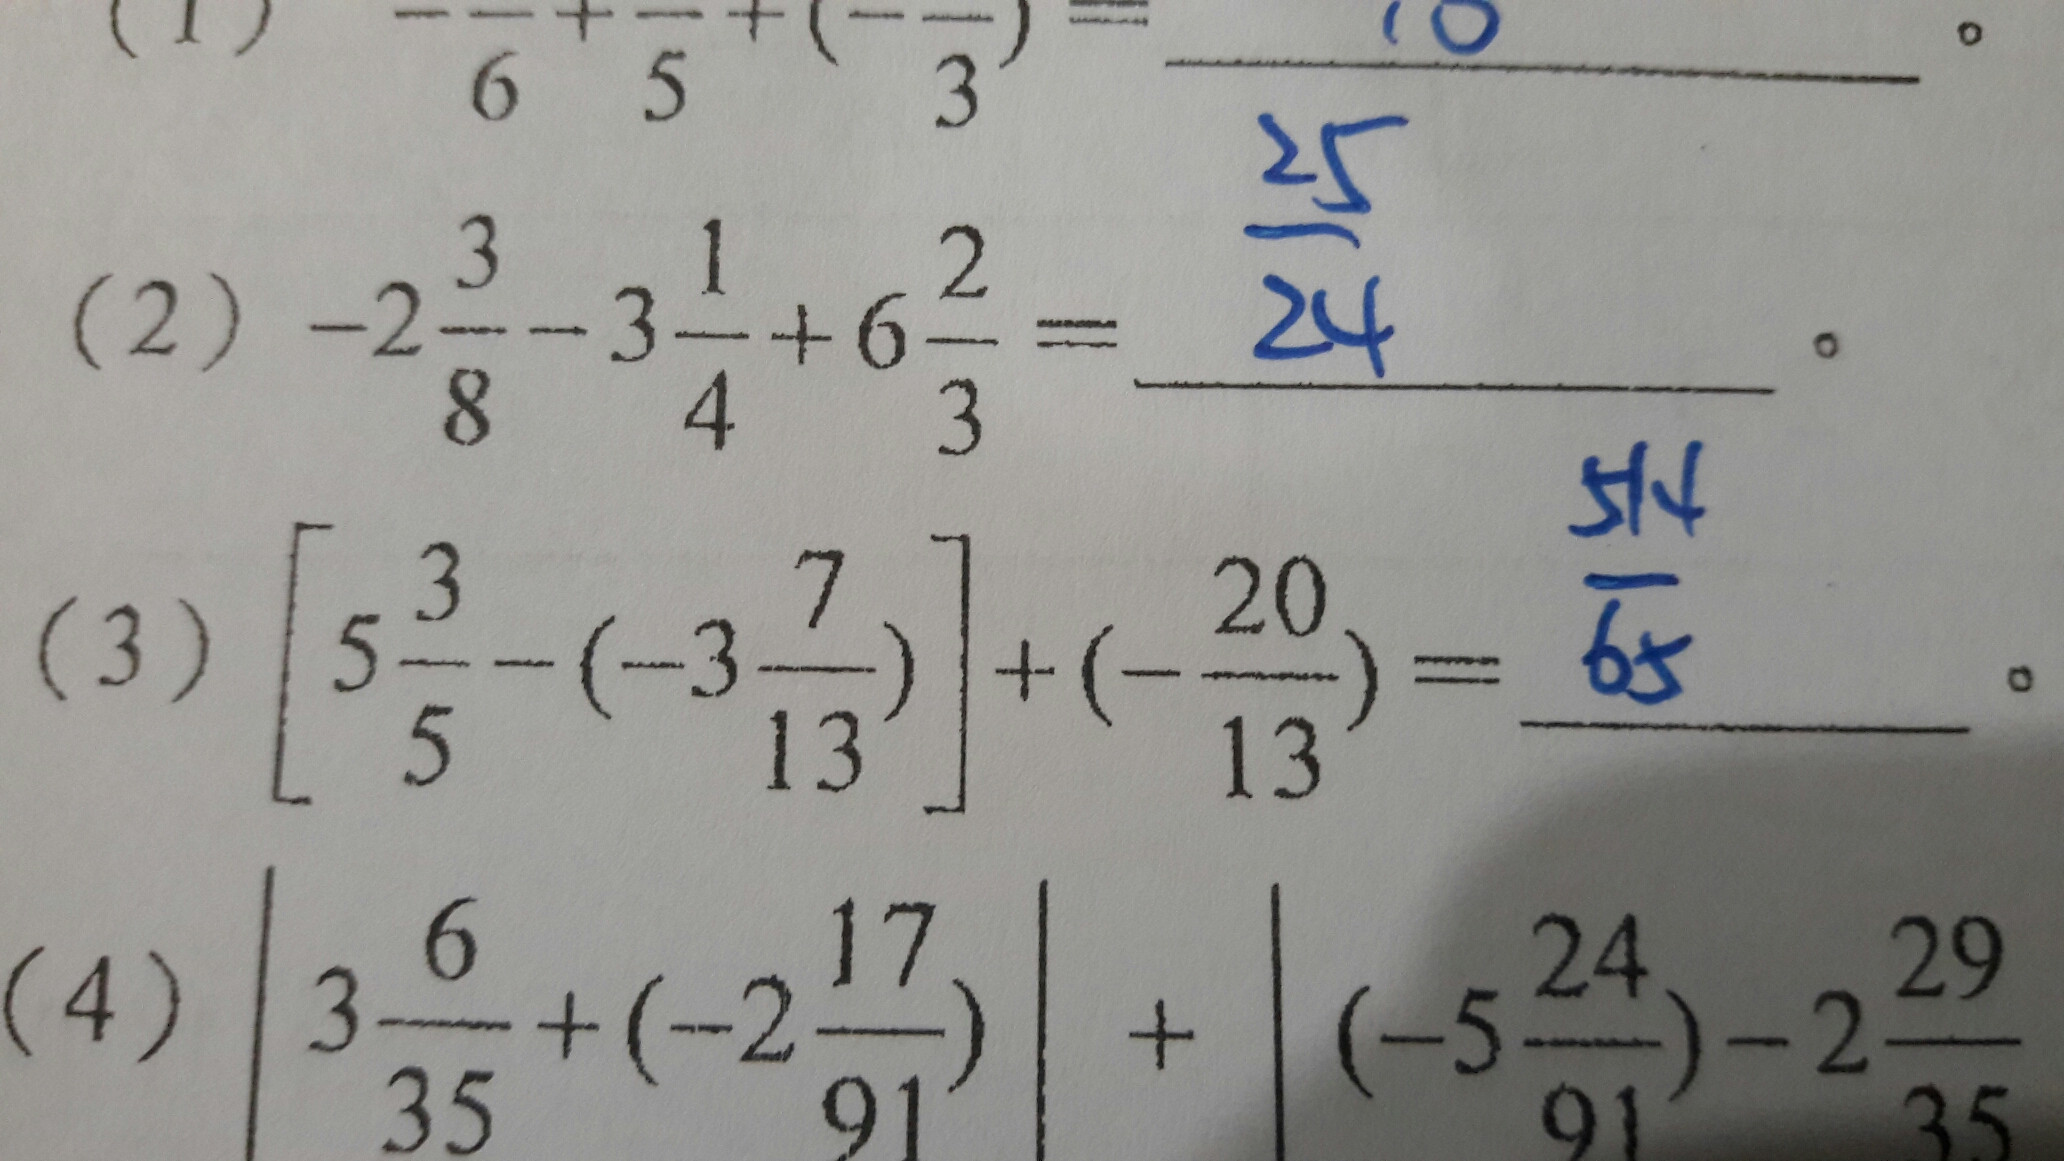 (1) −─/6 + ─/5 + (−─/3) = 10 。
(2) −2 3/8 − 3 1/4 + 6 2/3 = 25/24 。
(3) [5 3/5 − (−3 7/13)] + (−20/13) = 514/65 。
(4) |3 6/35 + (−2 17/91)| + |(−5 24/91) − 2 29/35